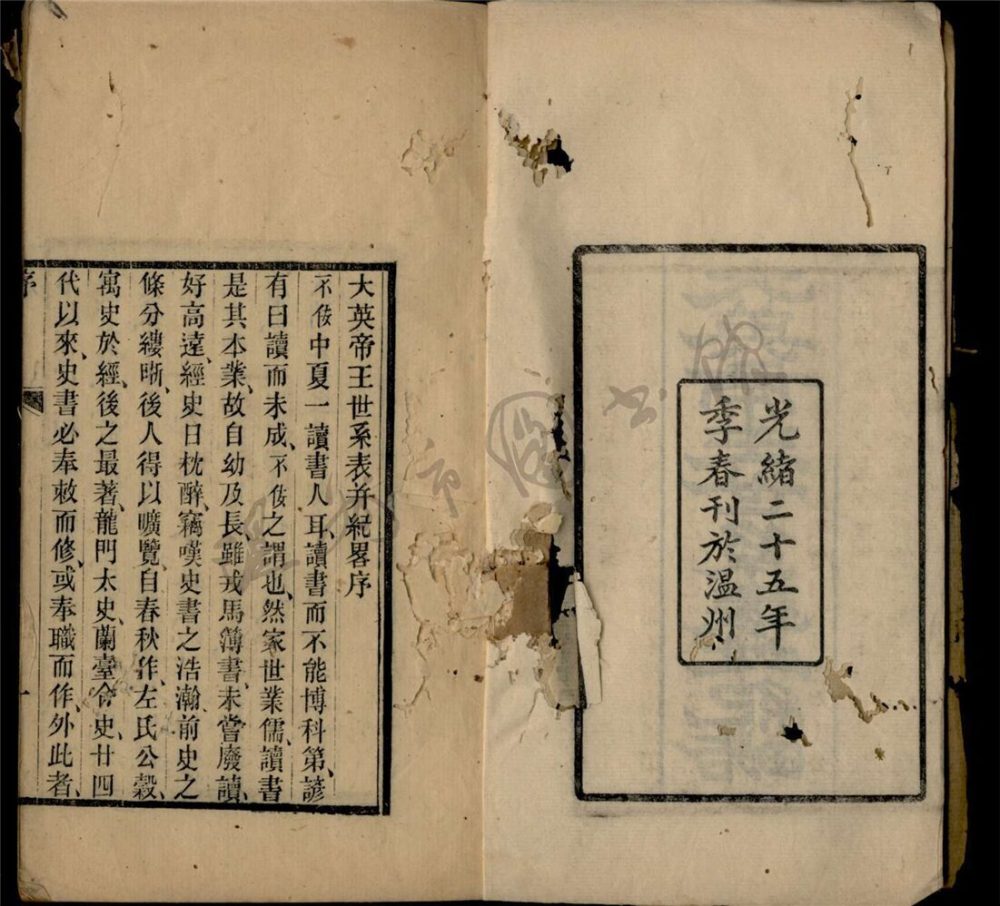 光緒二十五年
季春刊於温州
大英帝王世系表并紀畧序
不佞中夏一讀書人耳、讀書而不能博科第、諺
有曰讀而未成、不佞之謂也、然家世業儒、讀書
是其本業、故自幼及長、雖戎馬簿書、未嘗廢讀、
好高遠、經史日枕醉、竊嘆史書之浩瀚、前史之
條分縷晰、後人得以曠覽、自春秋作、左氏公穀、
寓史於經、後之最著、龍門太史、蘭臺令史、廿四
代以來、史書必奉敕而修、或奉職而作、外此者、
序
一